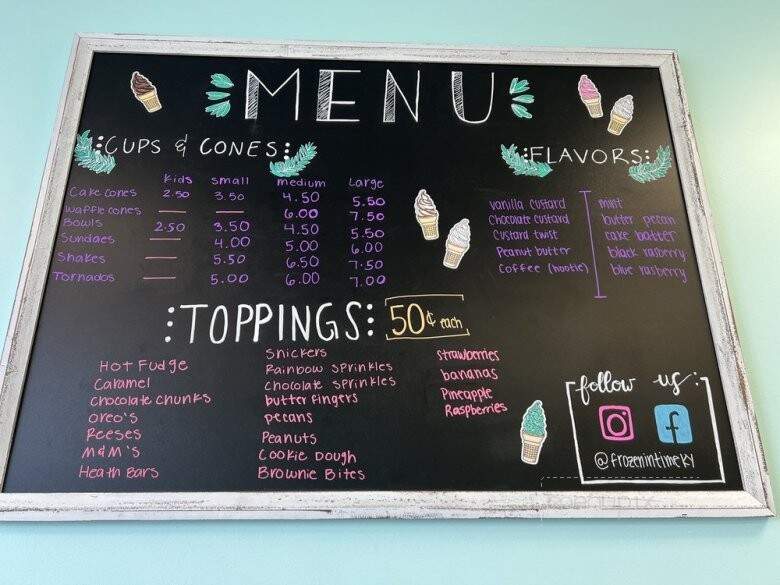 MENU
:CUPS & CONES:
Kids Small medium Large
Cake cones 2.50 3.50 4.50 5.50
Waffle cones — — 6.00 7.50
Bowls 2.50 3.50 4.50 5.50
Sundaes — 4.00 5.00 6.00
Shakes — 5.50 6.50 7.50
Tornados — 5.00 6.00 7.00
:FLAVORS:
vanilla custard
chocolate custard
custard twist
Peanut butter
Coffee (hootie)
mint
butter pecan
cake batter
black rasberry
blue rasberry
:TOPPINGS: 50¢ each
HOT FUDGE
Caramel
Chocolate CHUNKS
OREO'S
Reeses
M&M'S
Heath Bars
Snickers
Rainbow Sprinkles
Chocolate Sprinkles
butterfingers
pecans
Peanuts
Cookie Dough
Brownie Bites
strawberries
bananas
Pineapple
Raspberries
follow us:
@frozenintimeky